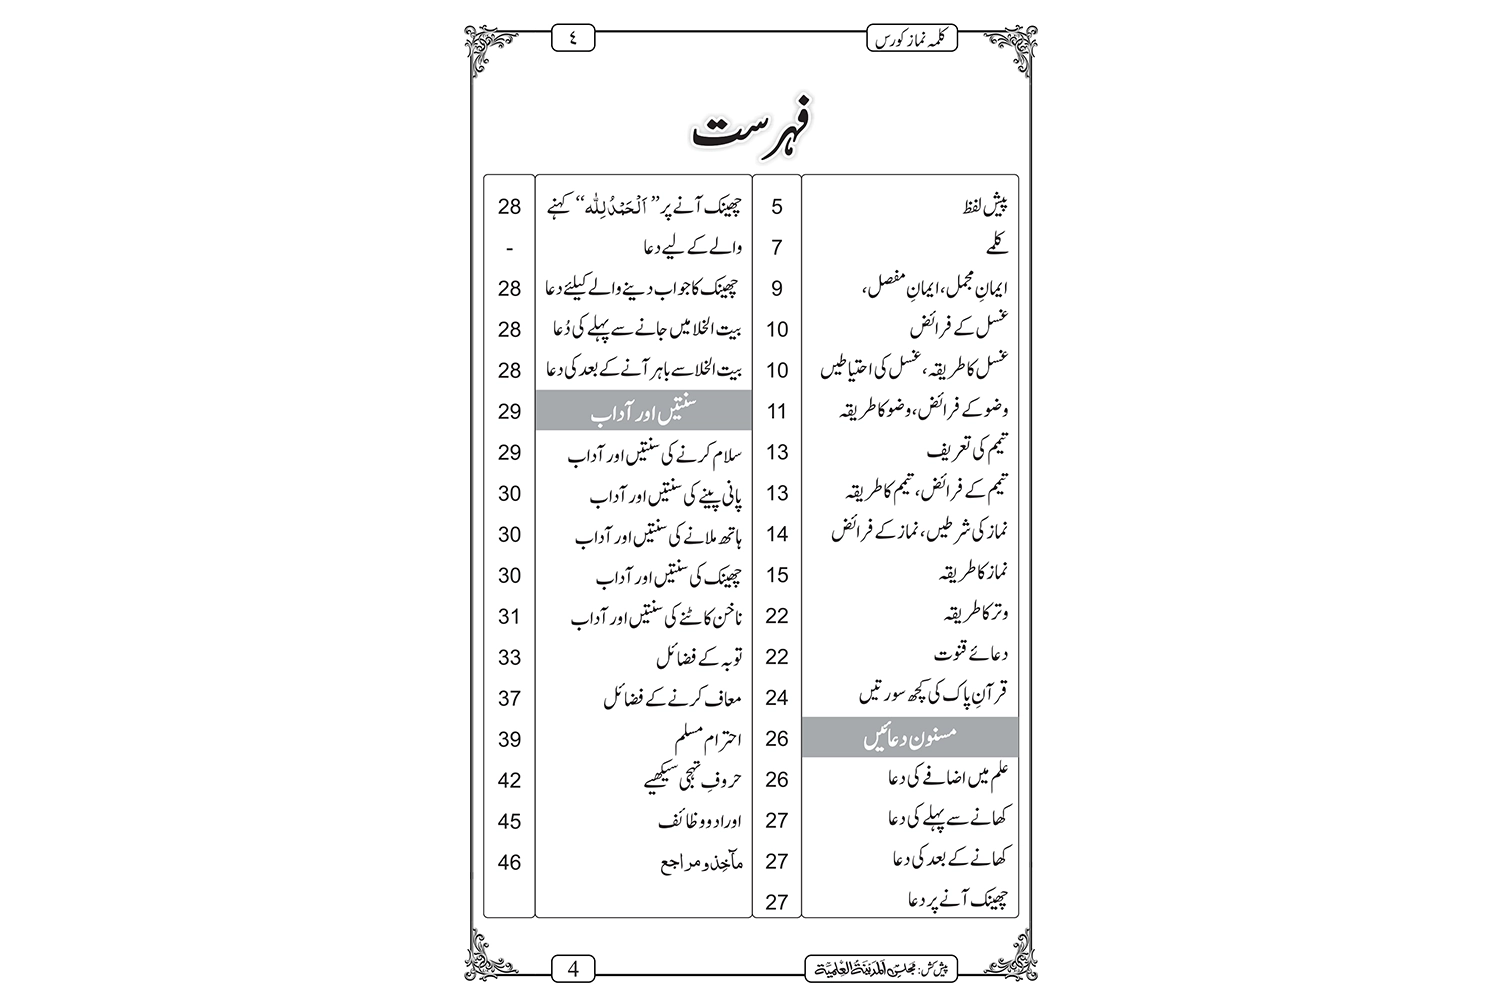 کلمہ نماز کورس
٤
فہرست
پیش لفظ 5
کلمے 7
ایمانِ مجمل، ایمانِ مفصل، 9
غسل کے فرائض 10
غسل کا طریقہ، غسل کی احتیاطیں 10
وضو کے فرائض، وضو کا طریقہ 11
تیمم کی تعریف 13
تیمم کے فرائض، تیمم کا طریقہ 13
نماز کی شرطیں، نماز کے فرائض 14
نماز کا طریقہ 15
وتر کا طریقہ 22
دعائے قنوت 22
قرآنِ پاک کی کچھ سورتیں 24
مسنون دعائیں 26
علم میں اضافے کی دعا 26
کھانے سے پہلے کی دعا 27
کھانے کے بعد کی دعا 27
چھینک آنے پر دعا 27
چھینک آنے پر ”اَلْحَمْدُ لِلّٰه“ کہنے 28
والے کے لیے دعا -
چھینک کا جواب دینے والے کیلئے دعا 28
بیت الخلا میں جانے سے پہلے کی دُعا 28
بیت الخلا سے باہر آنے کے بعد کی دعا 28
سنتیں اور آداب 29
سلام کرنے کی سنتیں اور آداب 29
پانی پینے کی سنتیں اور آداب 30
ہاتھ ملانے کی سنتیں اور آداب 30
چھینک کی سنتیں اور آداب 30
ناخن کاٹنے کی سنتیں اور آداب 31
توبہ کے فضائل 33
معاف کرنے کے فضائل 37
احترام مسلم 39
حروفِ تہجی سیکھیے 42
اوراد و وظائف 45
مآخِذ و مراجع 46
پیش کش: مجلس المدینۃ العلمیۃ
4